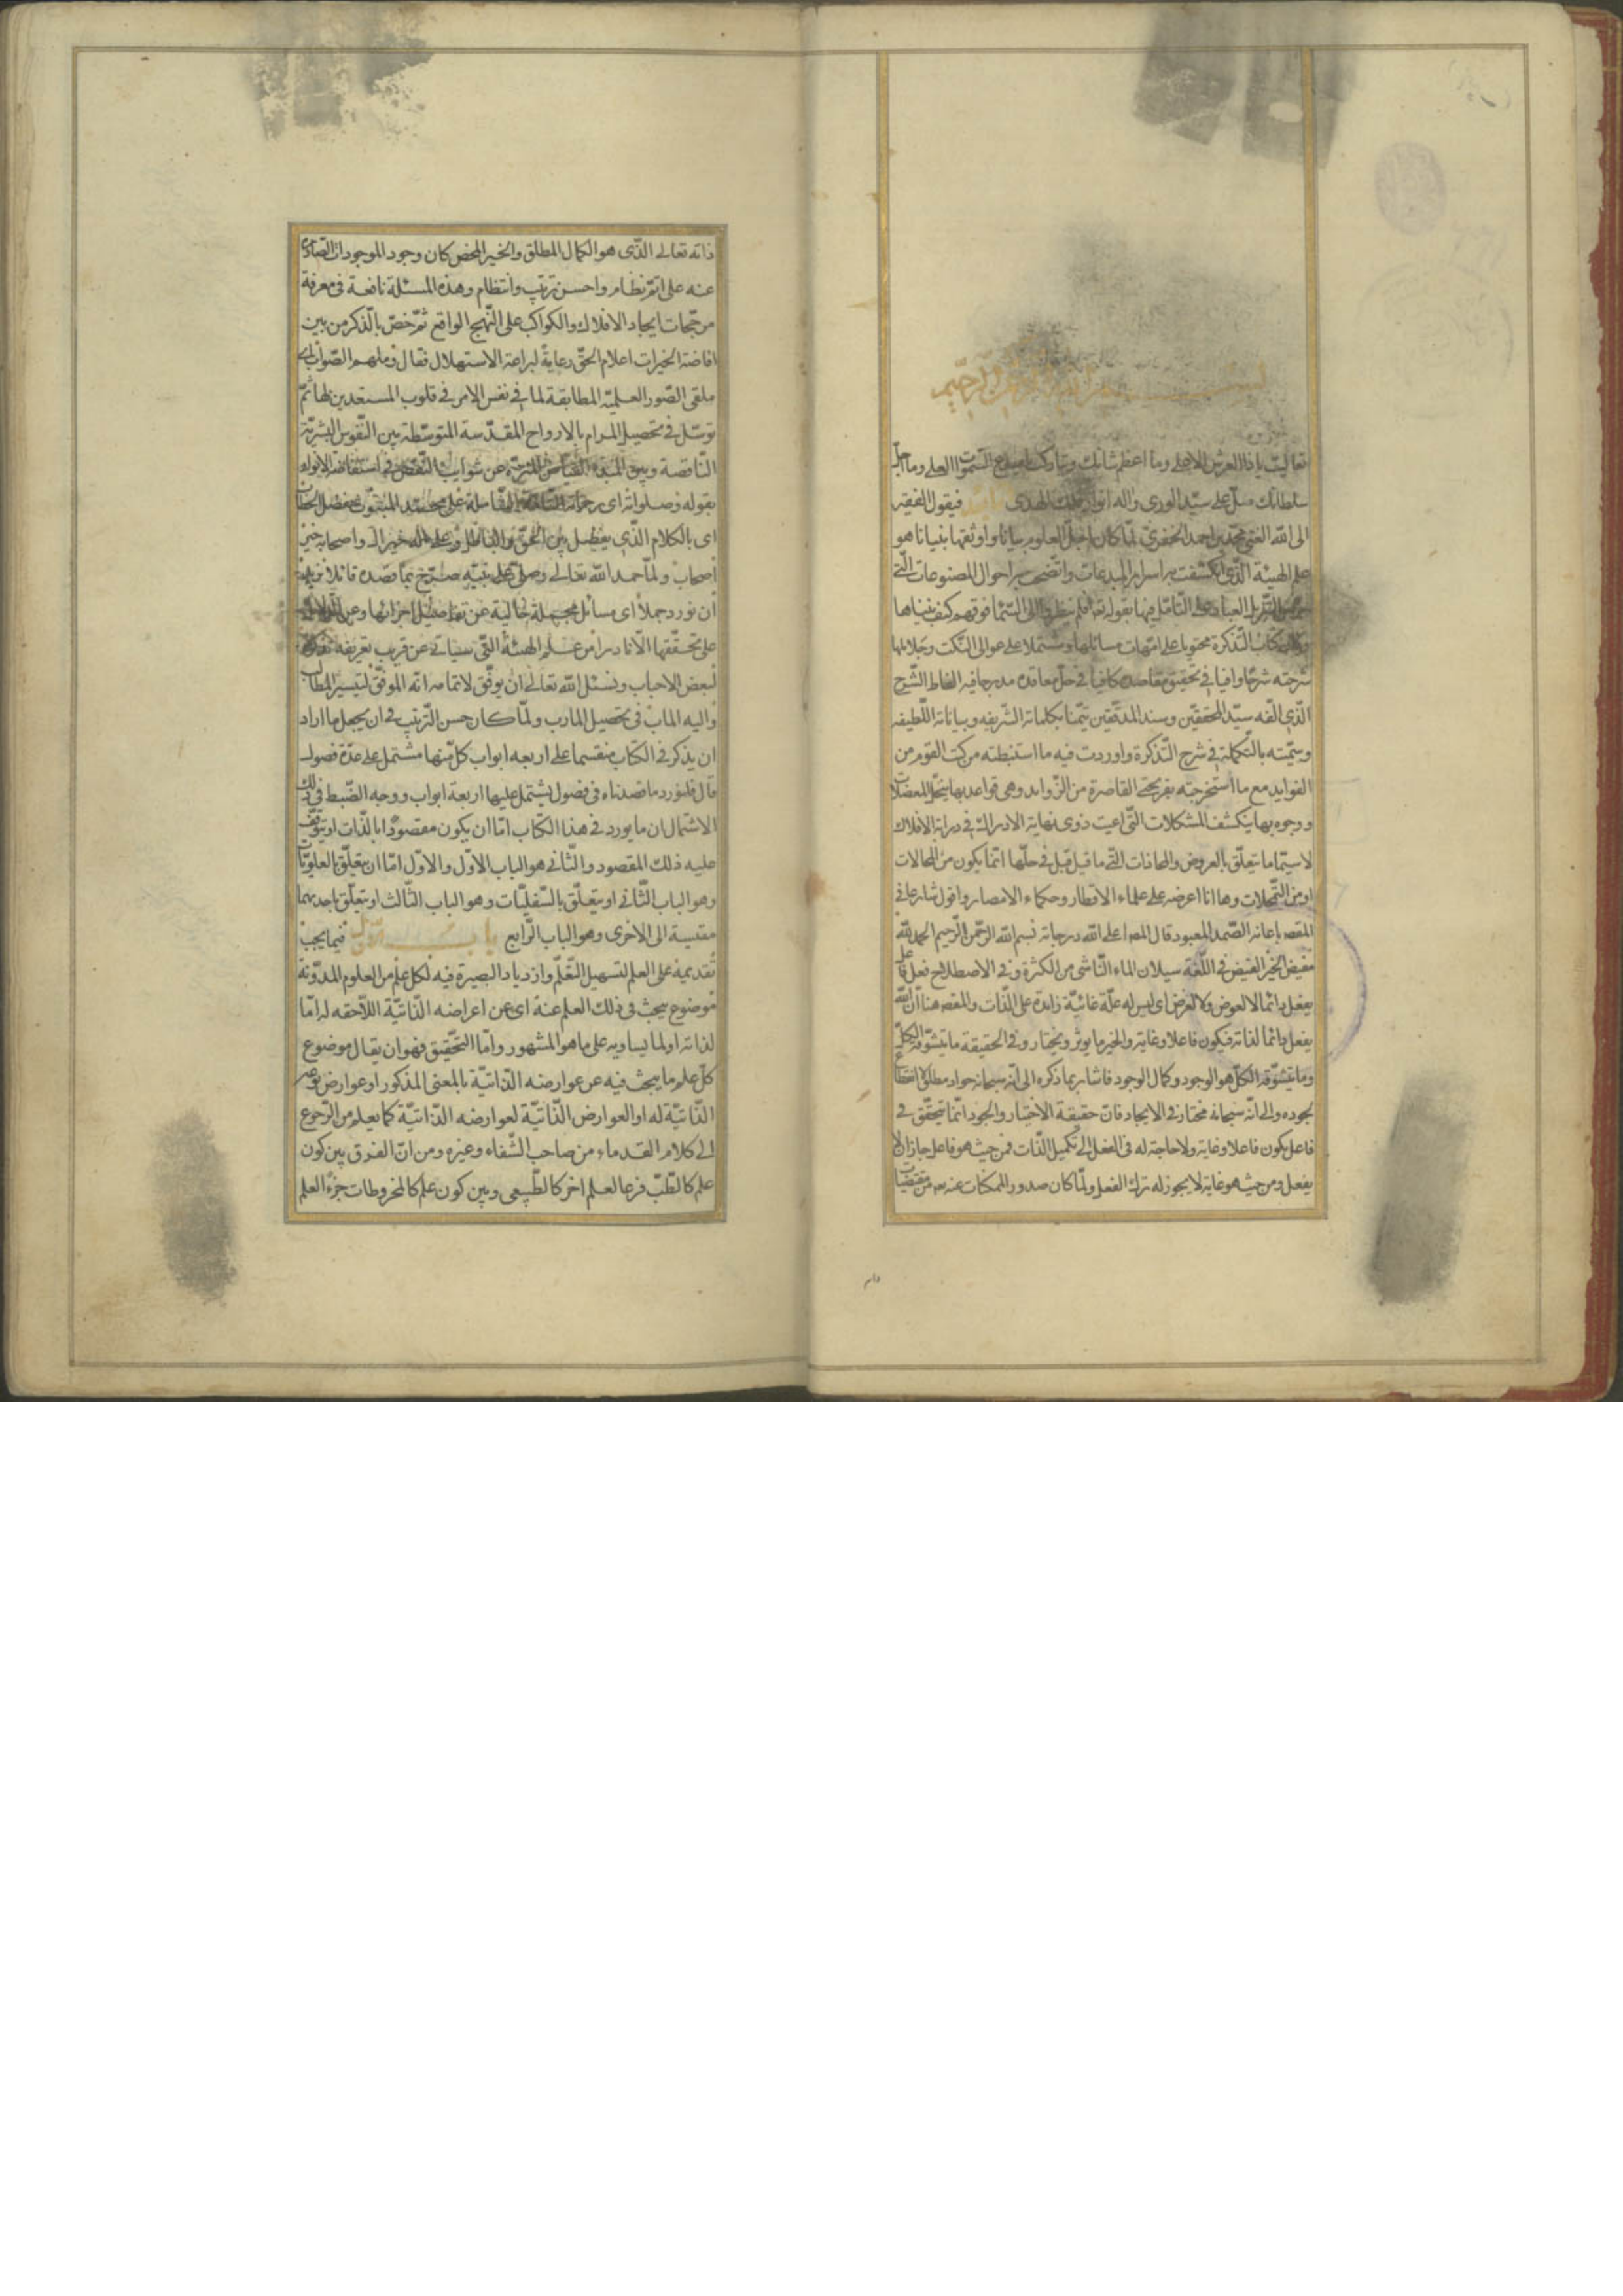 بسم الله الرحمن الرحيم
تعاليت ياذا العرش الاعلى وما اعظم شانك وتباركت يا مبدع السموات العلى وما اجل
سلطانك صل على سيد الورى واله انوار الهدى فيقول الفقير
الى الله الغنى محمد بن احمد الخفرى لما كان اجل العلوم بيانا واوثقها بنيانا هو
علم الهيئة الذى انكشفت به اسرار المبدعات واتضحت به احوال المصنوعات التى
التنزيل العباد على التامل فيها بقوله تعه افلم ينظروا الى السمآ فوقهم كيف بنيناها
وكان كتاب التذكرة محتويا على امهات مسائلها ومشتملا على عوالى النكت وجلايلها
شرحته شرحا وافيا فى تحقيق مقاصده كافيا فى حل معاقده مدرجا فيه الفاظ الشرح
الذى الفه سيد المحققين وسند المدققين تيمنا بكلماته الشريفه وبياناته اللطيفه
وسميته بالتكملة فى شرح التذكرة واوردت فيه ما استنبطته من كتب القوم من
الفوايد مع ما استخرجته بقريحتى القاصرة من الزوايد وهى قواعد بها ينحل المعضلات
ووجوه بها ينكشف المشكلات التى اعيت ذوى نهاية الادراك فى دراية الافلاك
لاسيما ما يتعلق بالعروض والمحاذات التى ما قيل قبل فى حلها انما يكون من المحالات
او من التمحلات وها انا اعرضه على علماء الاقطار وحكماء الامصار واقول شارعا فى
المقصه باعانه الصمد المعبود قال المصه اعلى الله درجاته بسم الله الرحمن الرحيم الحمد لله
مفيض الخير الفيض فى اللغة سيلان الماء الناشى من الكثرة وفى الاصطلاح فعل فاعل
يفعل دائما لا لعوض ولا لغرض اى ليس له علة غائية زايدة على الذات والمقصه هنا ان الله
يفعل دائما لذاته فيكون فاعلا وغاية والخير ما يوثر ويختار وفى الحقيقة ما يتشوقه الكل
وما يتشوقه الكل هو الوجود وكمال الوجود فاشار بما ذكره الى انه سبحانه جواد مطلق
بجوده والى انه سبحانه مختار فى الايجاد فان حقيقة الاختيار والجود انما تتحقق فى
فاعل يكون فاعلا وغاية ولا حاجة له فى الفعل الى تكميل الذات فمن حيث هو فاعل جاز ان لا
يفعل ومن حيث هو غاية لا يجوز له ترك الفعل ولما كان صدور الممكنات عنه من مقتضيات
ذاته تعالى الذى هو الكمال المطلق والخير المحض كان وجود الموجودات الصادرة
عنه على اتم نظام واحسن ترتيب وانتظام وهذه المسئلة نافعة فى معرفة
مرجحات ايجاد الافلاك والكواكب على النهج الواقع ثم خص بالذكر من بين
افاضة الخيرات اعلام الحق رعاية لبراعة الاستهلال فقال وملهم الصواب اى
ملقى الصور العلمية المطابقة لما فى نفس الامر فى قلوب المستعدين لها ثم
توسل فى تحصيل المرام بالارواح المقدسة المتوسطة بين النفوس البشرية
الناقصة وبين المبدء الفياض المنزه عن شوايب النقص فى استفاضة الانوار
بقوله وصلواته اى رحماته على محمد المبعوث بفصل الخطاب
اى بالكلام الذى يفصل بين الحق والباطل وعلى اله خير ال واصحابه خير
اصحاب ولما حمد الله تعالى وصلى على نبيه صرح بما قصده قائلا نريد
ان نورد جملا اى مسائل مجملة خالية عن تفاصيل اجزائها وعن الدلائل
على تحققها الا نادرا من علم الهيئة التى سياتى عن قريب تعريفه تذكرة
لبعض الاحباب ونسئل الله تعالى ان يوفق لاتمامه انه الموفق لتيسير المطالب
واليه الماب فى تحصيل المارب ولما كان حسن الترتيب فى ان يجعل ما اراد
ان يذكر فى الكتاب منقسما على اربعه ابواب كل منها مشتمل على عدة فصول
قال فلنورد ما قصدناه فى فصول يشتمل عليها اربعة ابواب ووجه الضبط فى ذلك
الاشتمال ان ما يورد فى هذا الكتاب اما ان يكون مقصودا بالذات او يتوقف
عليه ذلك المقصود والثانى هو الباب الاول والاول اما ان يتعلق بالعلويات
وهو الباب الثانى او يتعلق بالسفليات وهو الباب الثالث او يتعلق باحديهما
مقيسة الى الاخرى وهو الباب الرابع باب الاول فيما يجب
تقديمه على العلم لتسهيل التعلم وازدياد البصيرة فيه لكل علم من العلوم المدونة
موضوع يبحث فى ذلك العلم عنه اى عن اعراضه الذاتية اللاحقه له اما
لذاته او لما يساويه على ما هو المشهور واما التحقيق فهو ان يقال موضوع
كل علم ما يبحث فيه عن عوارضه الذاتية بالمعنى المذكور او عوارض نوعه
الذاتية له او العوارض الذاتية لعوارضه الذاتية كما يعلم من الرجوع
الى كلام القدماء من صاحب الشفاء وغيره ومن ان الفرق بين كون
علم كالطب فرعا لعلم اخر كالطبيعى وبين كون علم كالمخروطات جزء العلم